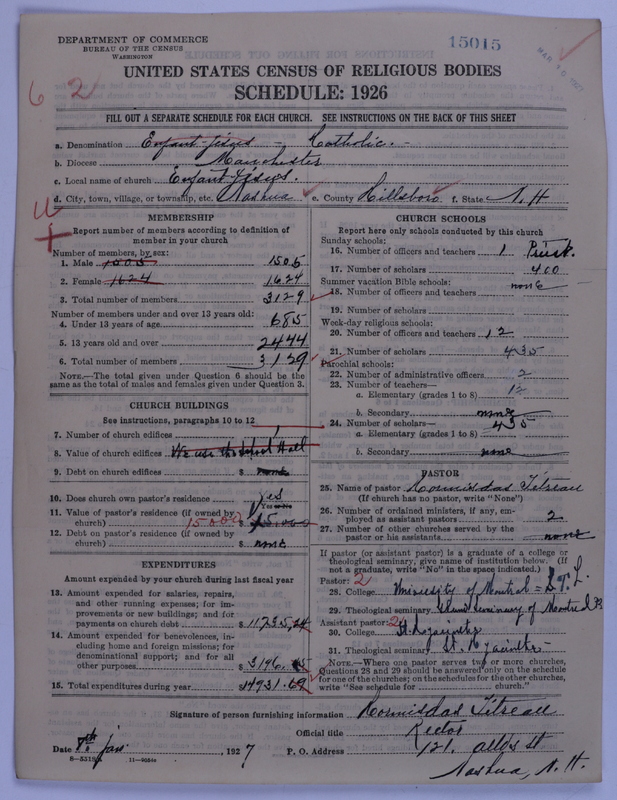 DEPARTMENT OF COMMERCE
BUREAU OF THE CENSUS
WASHINGTON
15015
UNITED STATES CENSUS OF RELIGIOUS BODIES
SCHEDULE: 1926
6 2
FILL OUT A SEPARATE SCHEDULE FOR EACH CHURCH. SEE INSTRUCTIONS ON THE BACK OF THIS SHEET
a. Denomination Enfant-Jésus - Catholic.
b. Diocese Manchester
c. Local name of church Enfant-Jésus.
d. City, town, village, or township, etc. Nashua e. County Hillsboro f. State N. H
MEMBERSHIP
Report number of members according to definition of member in your church
Number of members, by sex:
1. Male 1505 1505
2. Female 1624 1624
3. Total number of members 3129
Number of members under and over 13 years old:
4. Under 13 years of age 685
5. 13 years old and over 2444
6. Total number of members 3129
NOTE.—The total given under Question 6 should be the
same as the total of males and females given under Question 3.
CHURCH BUILDINGS
See instructions, paragraphs 10 to 12
7. Number of church edifices 1
8. Value of church edifices We use the school Hall
9. Debt on church edifices $ none
10. Does church own pastor's residence yes
Yes or No
11. Value of pastor's residence (if owned by
church) 15000 $ 15,000
12. Debt on pastor's residence (if owned by
church) $ none
EXPENDITURES
Amount expended by your church during last fiscal year
13. Amount expended for salaries, repairs,
and other running expenses; for im-
provements or new buildings; and for
payments on church debt $ 11,735,24
14. Amount expended for benevolences, in-
cluding home and foreign missions; for
denominational support; and for all
other purposes 3196.45
15. Total expenditures during year $ 14931.69
CHURCH SCHOOLS
Report here only schools conducted by this church
Sunday schools:
16. Number of officers and teachers 1
17. Number of scholars 400
Summer vacation Bible schools:
18. Number of officers and teachers none
19. Number of scholars
Week-day religious schools:
20. Number of officers and teachers 12
21. Number of scholars 435
Parochial schools:
22. Number of administrative officers 2
23. Number of teachers—
a. Elementary (grades 1 to 8) 12
b. Secondary none
24. Number of scholars— 435
a. Elementary (grades 1 to 8)
b. Secondary none
PASTOR
25. Name of pastor
(If church has no pastor, write "None")
26. Number of ordained ministers, if any, em-
ployed as assistant pastors 2.
27. Number of other churches served by the
pastor or his assistants. none
If pastor (or assistant pastor) is a graduate of a college or
theological seminary, give name of institution below. (If
not a graduate, write "No" in the space indicated.)
Pastor: 2
28. College University of Montreal
29. Theological seminary Seminary of Montreal
Assistant pastor: 2
30. College St. Hyacinthe
31. Theological seminary St. Hyacinthe
NOTE.—Where one pastor serves two or more churches,
Questions 28 and 29 should be answered only on the schedule
for one of the churches; on the schedules for the other churches,
write "See schedule for church."
Signature of person furnishing information
Official title Rector
Date 8th Jan 1927 P. O. Address 121. Allds St
Nashua, N. H.